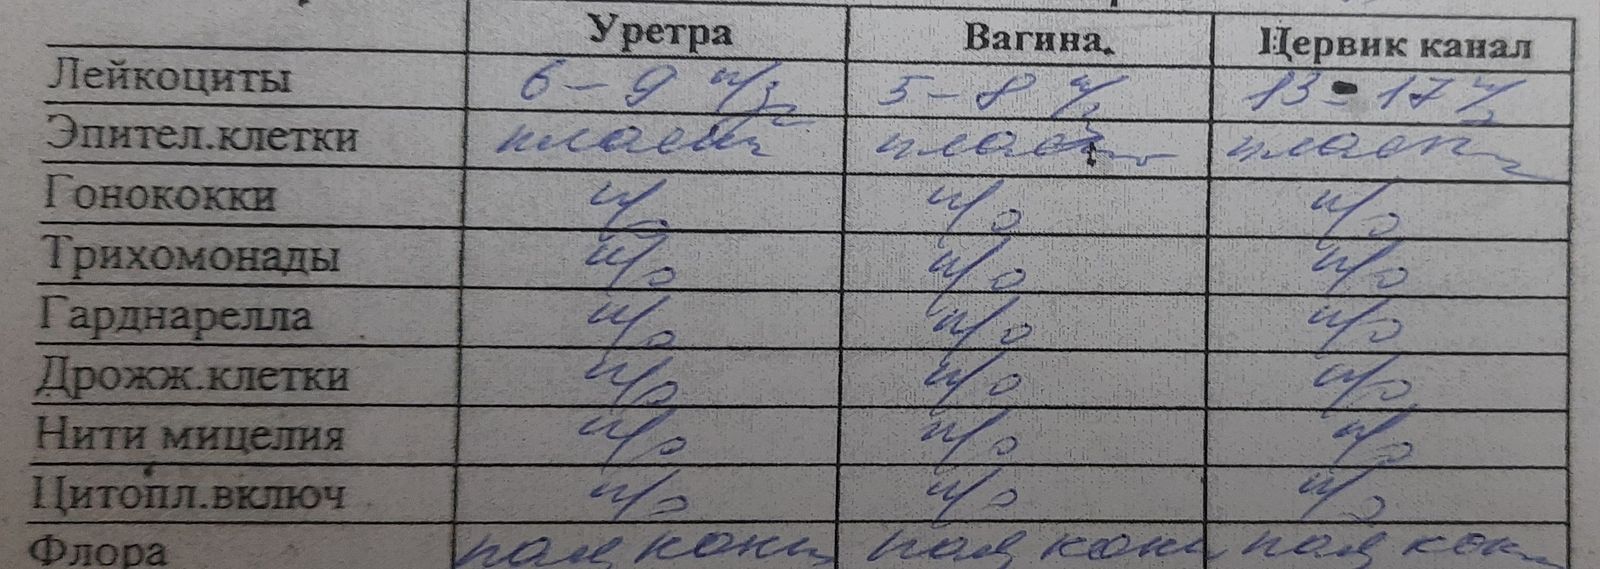 Уретра Вагина. Цервик канал
Лейкоциты 6-9 п/з 5-8 п/з 13-17 п/з
Эпител.клетки плоск плоск плоск
Гонококки н/о н/о н/о
Трихомонады н/о н/о н/о
Гарднарелла н/о н/о н/о
Дрожж.клетки н/о н/о н/о
Нити мицелия н/о н/о н/о
Цитопл.включ н/о н/о н/о
Флора пал, кокки пал, кокки пал, кокки